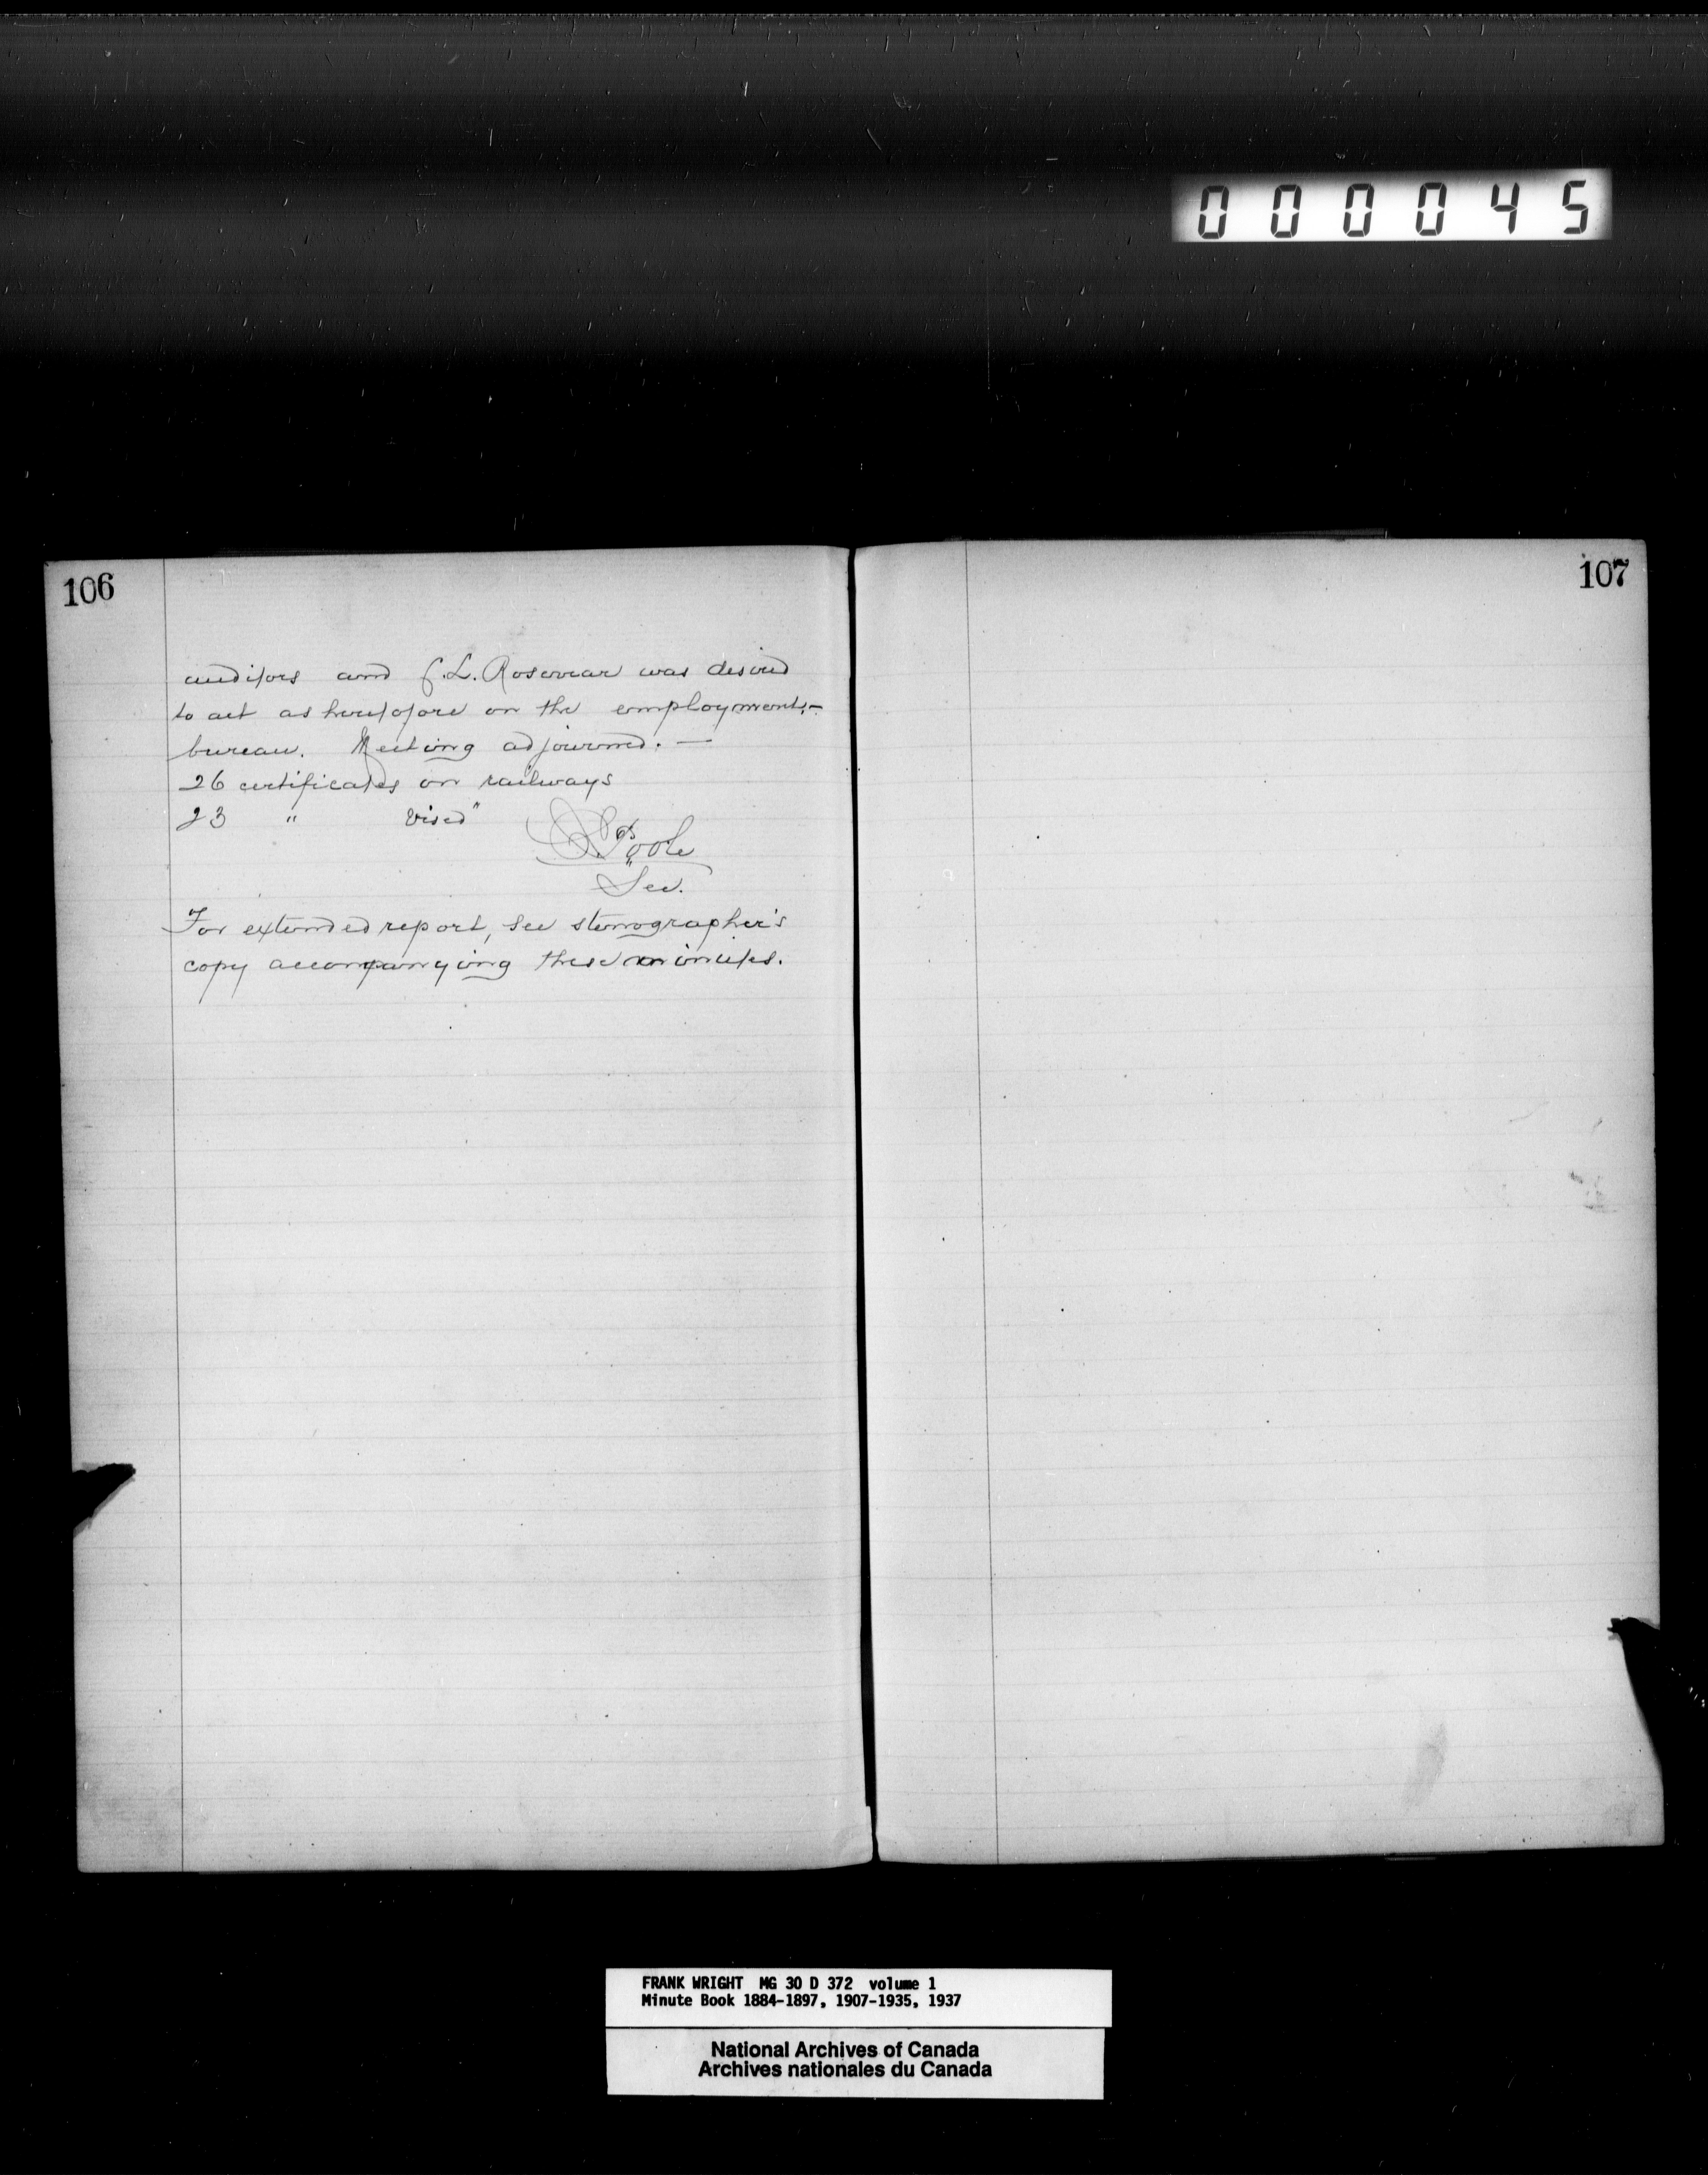 000045
106
auditors and J. L. Rosevear was desired
to act as heretofore on the employment-
bureau. Meeting adjourned. —
26 certificates on railways
23 " Vised "
Poole
Sec.
For extended report, see stenographer's
copy accompanying these minutes.
107
FRANK WRIGHT MG 30 D 372 volume 1
Minute Book 1884-1897, 1907-1935, 1937
National Archives of Canada
Archives nationales du Canada